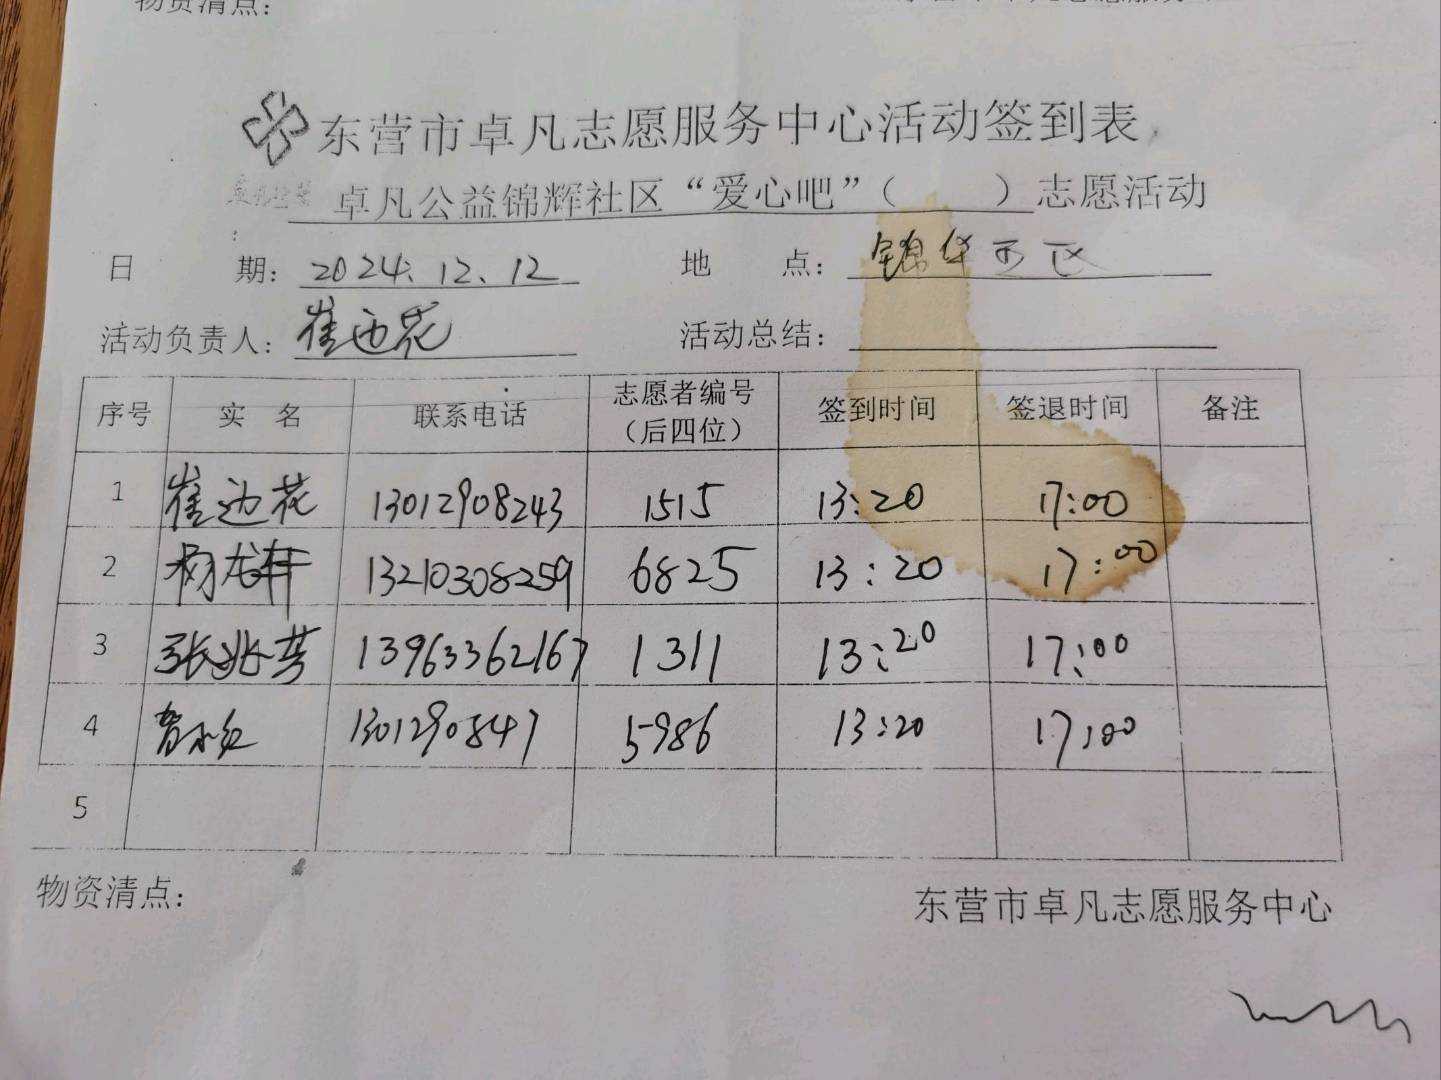 物资清点：
东营市卓凡志愿服务中心活动签到表
卓凡公益锦辉社区“爱心吧”（ ）志愿活动
日 期：2024.12.12 地 点：锦华西区
活动负责人：崔边花 活动总结：
序号 实 名 联系电话 志愿者编号（后四位） 签到时间 签退时间 备注
1 崔边花 13012908243 1515 13:20 17:00
2 13210308259 6825 13:20 17:00
3 张兆芳 13963362167 1311 13:20 17:00
4 1301290847 5986 13:20 17:00
5
物资清点： 东营市卓凡志愿服务中心